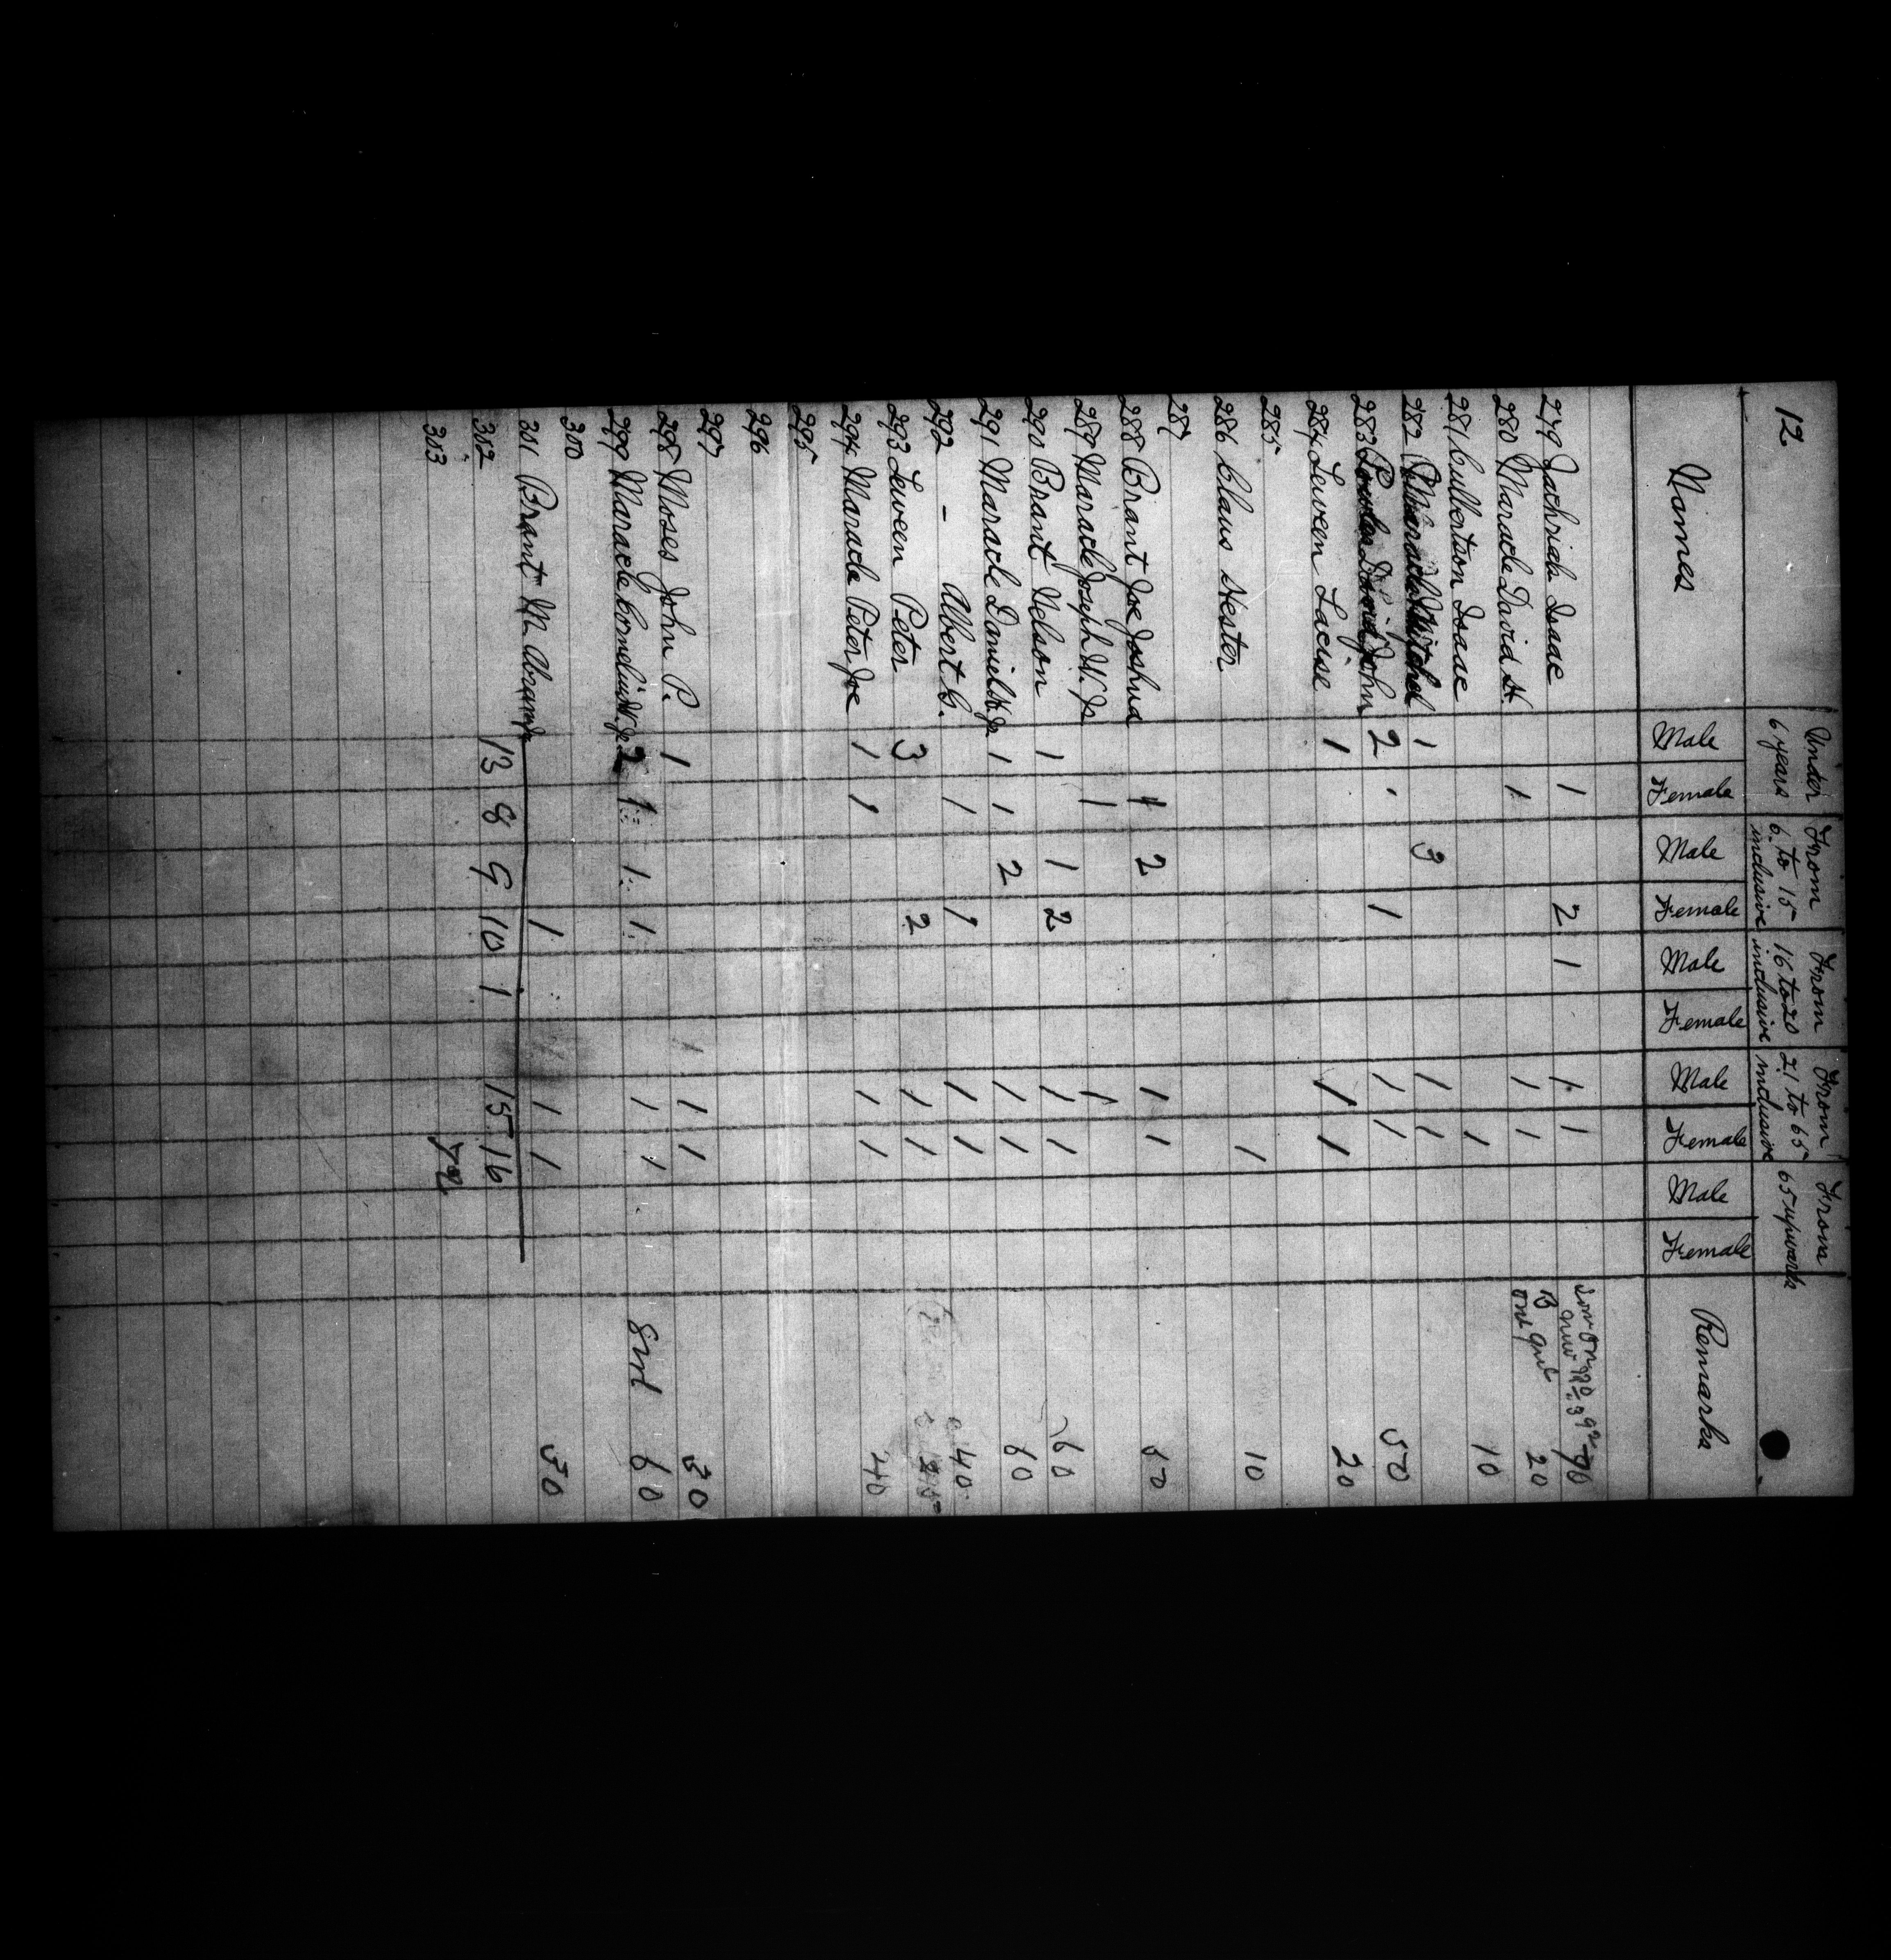 12
Under 6 years From 6 to 15 inclusive From 16 to 20 inclusive From 21 to 65 inclusive From 65 upwards
Names Male Female Male Female Male Female Male Female Male Female Remarks
279 Isaac 1 2 1 1 1 Son on No. 3
280 Maracle David H. 1 1 1 20
281 Culbertson Isaac 1 10
282 1 3 1 1
283 John 2 1 1 1 1 50
284 Leween Lacise 1 1 1 20
285
286 Claus Hester 1 10
287
288 Brant Joe Joshua 1 2 1 1 50
289 Maracle Joseph W. Jr 1 1
290 Brant Nelson 1 1 2 1 1 60
291 Maracle Daniel H. Jr 1 1 2 1 1 60
292 - Albert C. 1 1 1 1 40
293 Leween Peter 3 2 1 1
294 Maracle Peter Joe 1 1 1 1 40
295
296
297
298 Moses John P. 1 1 1 30
299 Maracle Cornelius W. Jr. 2 1 1 1 1 1 60
300
301 Brant M. Abram Jr 1 1 1 30
302 13 8 9 10 1 15 16
303 72